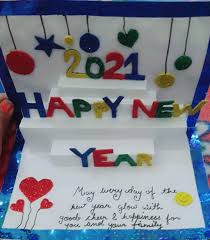 2021
HAPPY NEW
YEAR
May every day of the
new year glow with
good cheer & happiness for
you and your family